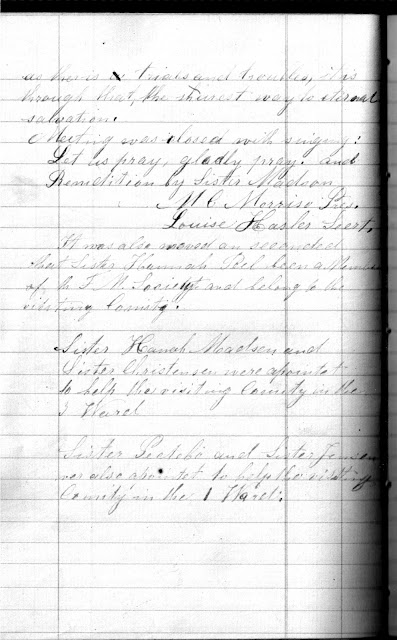 as there is in trials and troubles, it is
through that, the shurest way to eternal
salvation.
Meeting was closed with singing:
Let us pray, gladly pray. and
Benedition by Sister Madson
M C Morriso Pres.
Louise Hasler Secrt.
It was also moved an seconded
that Sister Hannah Peel been a Member
of th F. M. Society and belong to the
visiting Comity.
Sister Hanah Madsen and
Sister Christensen were apointet
to help the visiting Comity in the
3 Ward
Sister and Sister Jensen
was also apointet to help the visiting
Comity in the 1 Ward.